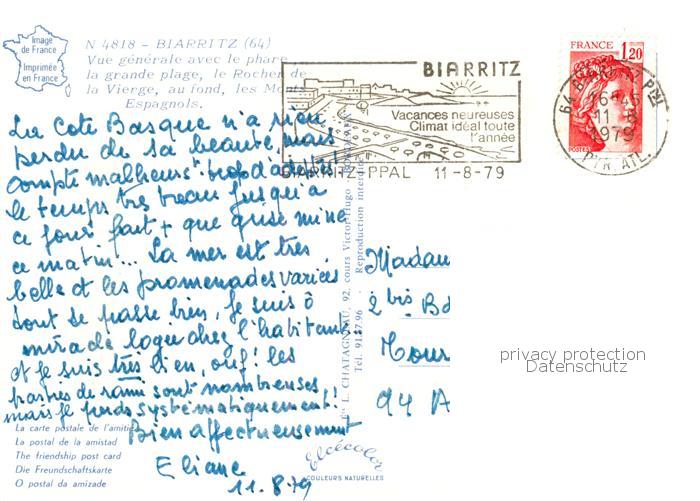 Image
de France
Imprimée
en France
N 4818 - BIARRITZ (64)
Vue générale avec le phare
la grande plage, le Rocher de
la Vierge, au fond, les Monts
Espagnols.
BIARRITZ
Vacances heureuses
Climat idéal toute
l'année
BIARRITZ PPAL 11-8-79
FRANCE 1,20
POSTES
64 BIARRITZ PPAL
16-45
11-8
1979
PYR. ATL.
La Cote Basque n'a rien
perdu de sa beauté, mais
compte malheurs trop d'adeptes!
le temps très beau jusqu'à
ce jour fait + que grise mine
ce matin... La mer est très
belle et les promenades variées
tout se passe bien, je suis ô
miracle logée chez l'habitant
et je suis très bien, ouf! les
parties de rami sont nombreuses,
mais je perds systématiquement!!
Bien affectueusement
Eliane
11.8.79
Madam
2 bis Bd
94
Éts L. CHATAGNEAU, 92, cours Victor-Hugo
Tél. 91.57.96 - Reproduction interdite
La carte postale de l'amitié
La postal de la amistad
The friendship post card
Die Freundschaftskarte
O postal da amizade
Elcécolor
COULEURS NATURELLES
privacy protection
Datenschutz